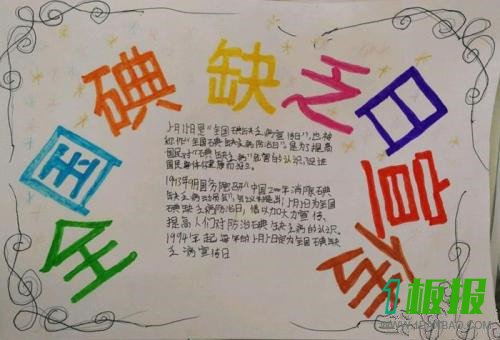 全国碘缺乏日宣传
5月15日是“全国碘缺乏病宣传日”,也被
称作“全国碘缺乏病防治日”是为提高
国民对“碘缺乏病”危害的认识,促进
国民身体健康而设立。
1993年9月国务院召开“中国2000年消除碘
缺乏病动员会”,会议提出5月5日为全国
碘缺乏病防治日,借以加大力宣传,
提高人们对防治碘缺乏病的认识。
1994年起每年的5月5日定为全国碘缺
乏病宣传日
1板报
WWW.1BANBAO.COM